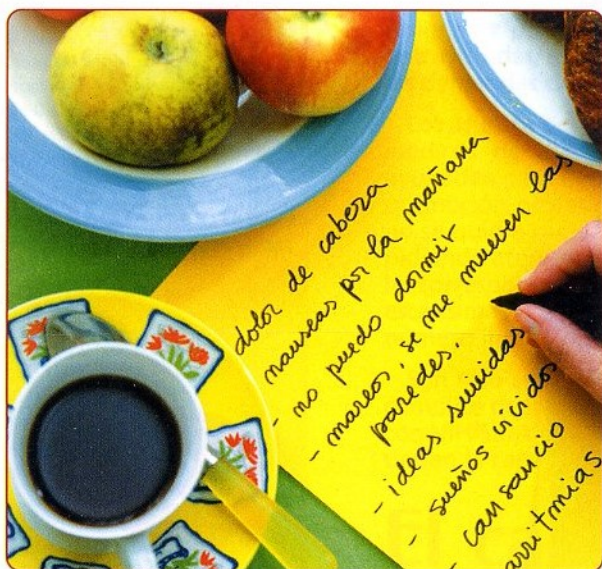 dolor de cabeza
nauseas por la mañana
- no puedo dormir
- mareos, se me mueven las
paredes.
- ideas suicidas
- sueños vívidos
- cansancio
arritmias